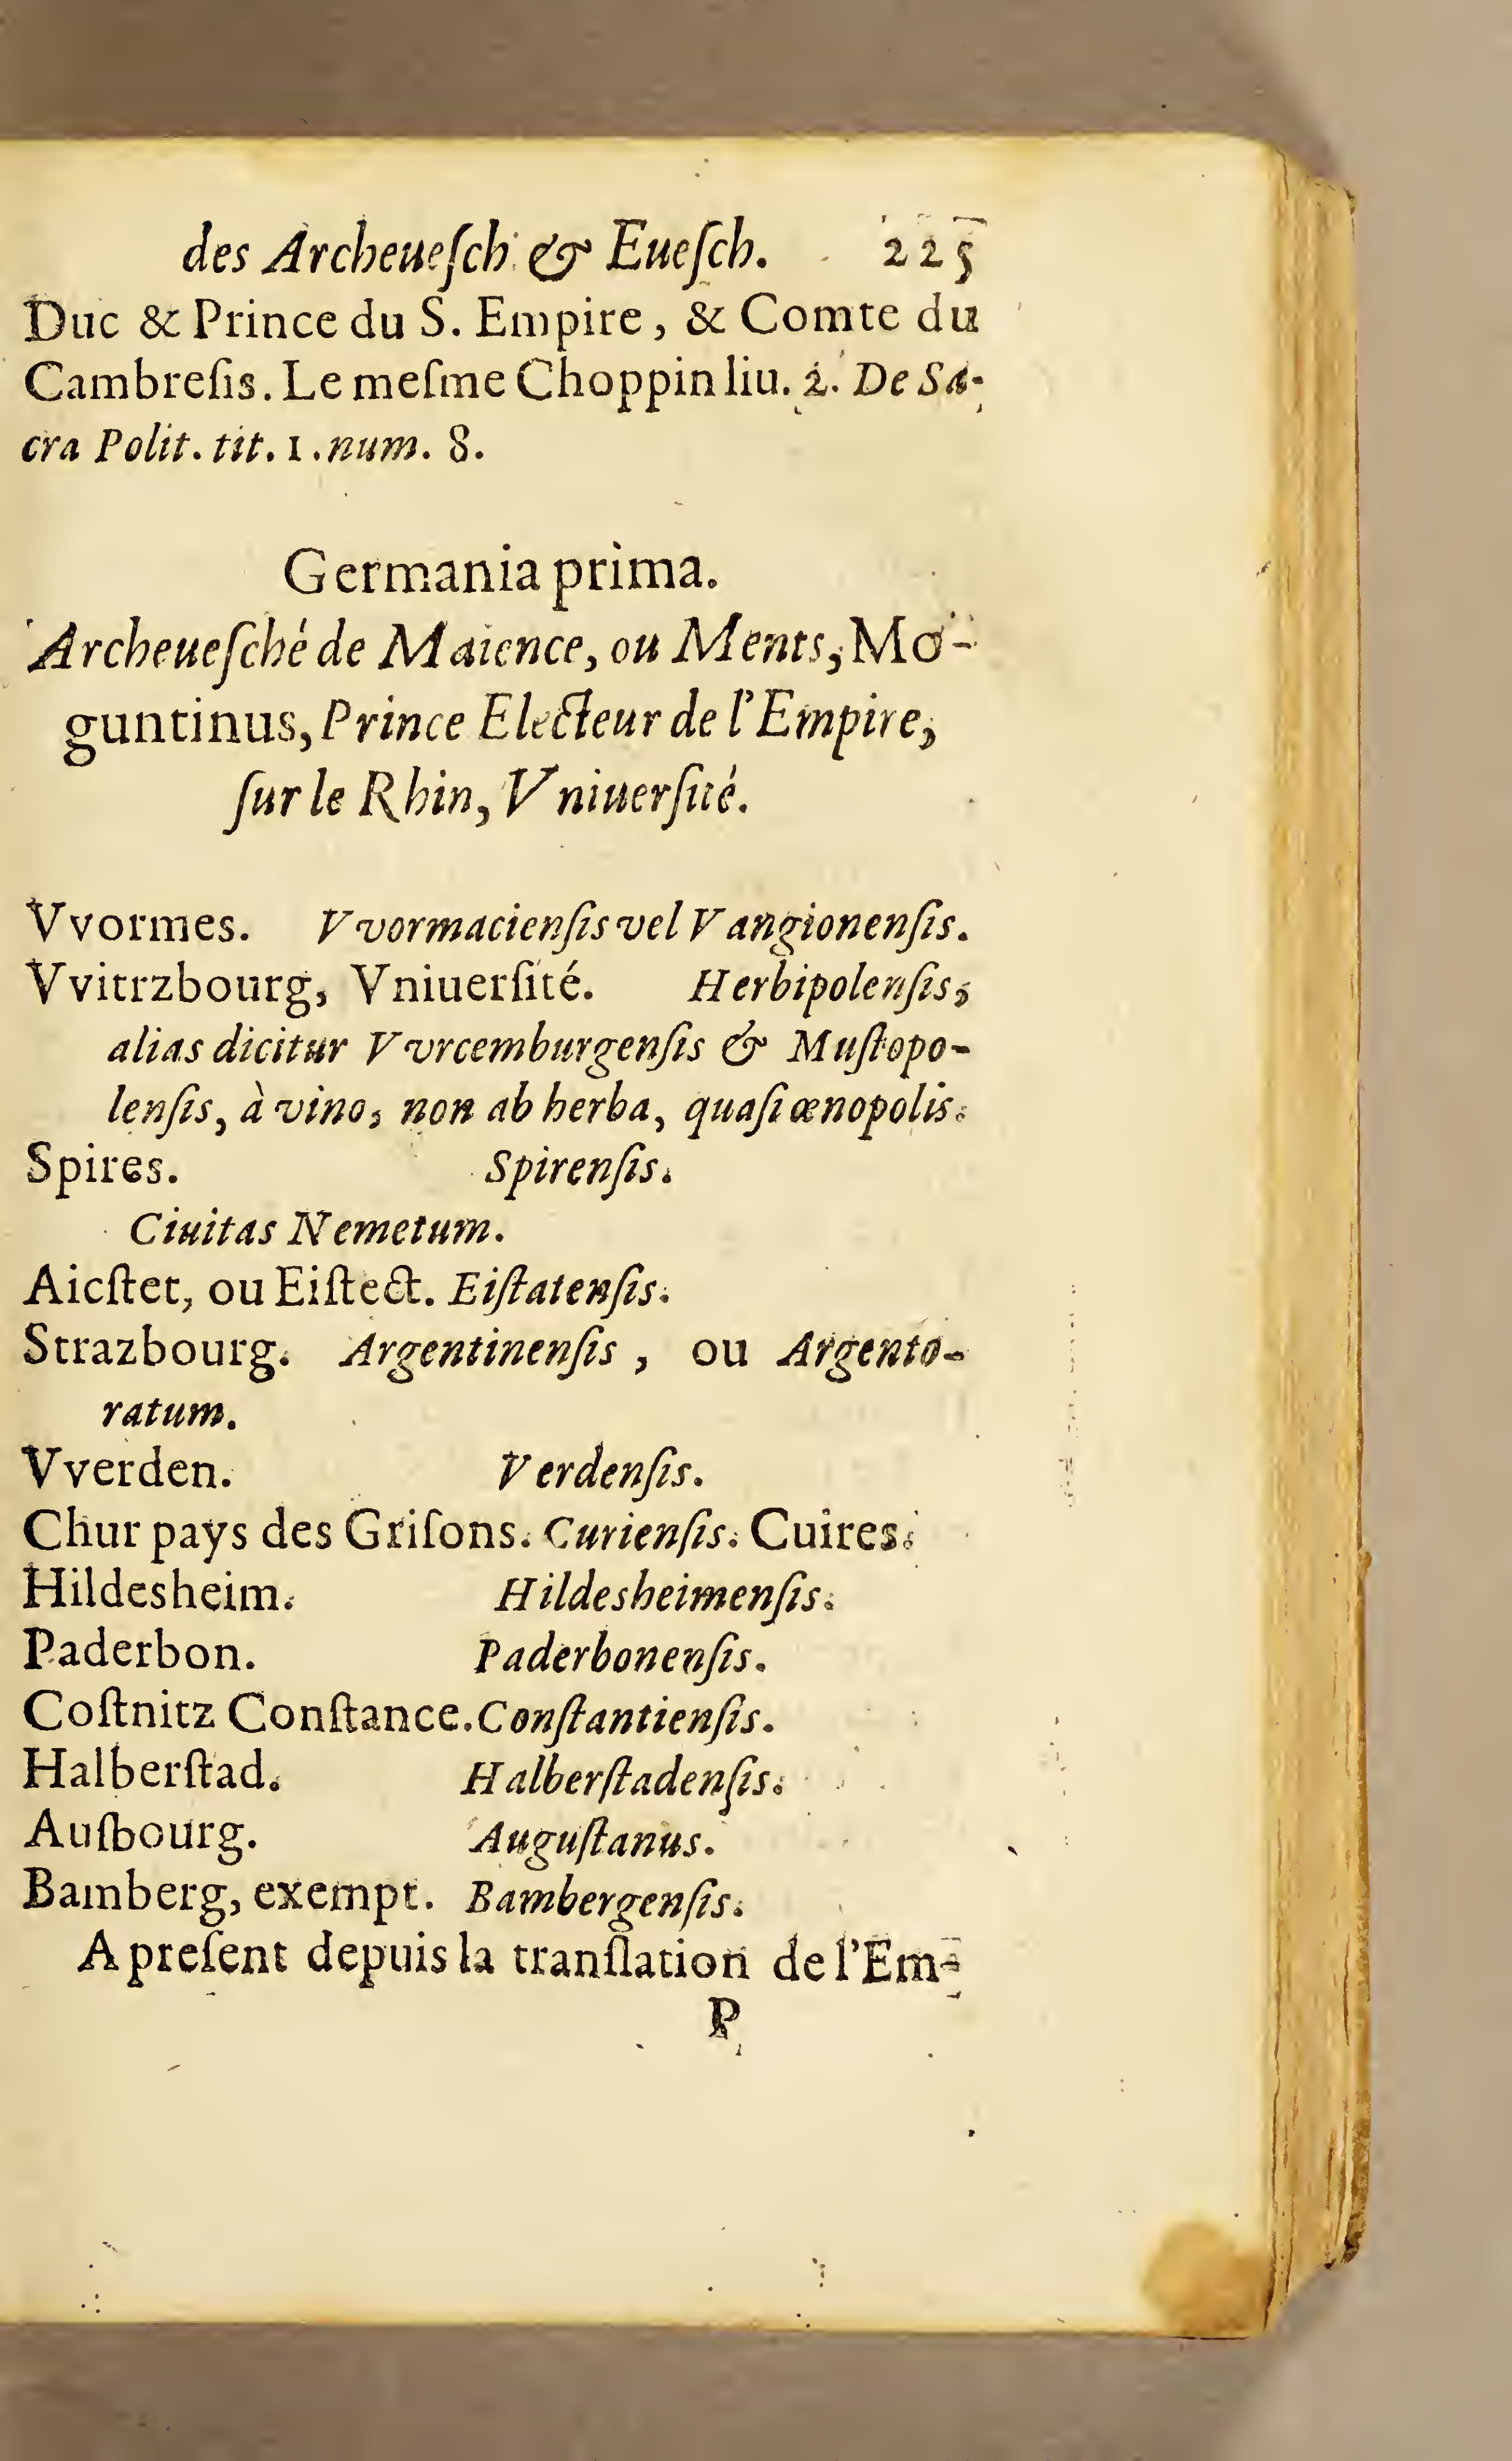 des Archeueſch. & Eueſch. 225
Duc & Prince du S. Empire, & Comte du
Cambreſis. Le meſme Choppin liu. 2. De Sa-
cra Polit. tit. 1. num. 8.
Germania prima.
Archeueſché de Maience, ou Ments, Mo-
guntinus, Prince Electeur de l'Empire,
ſur le Rhin, Vniuerſité.
Vvormes. Vvormacienſis vel Vangionenſis.
Vvitrzbourg, Vniuerſité. Herbipolenſis,
alias dicitur Vvrcemburgenſis & Muſtopo-
lenſis, à vino, non ab herba, quaſi œnopolis.
Spires. Spirenſis.
Ciuitas Nemetum.
Aicſtet, ou Eiſtect. Eiſtatenſis.
Strazbourg. Argentinenſis, ou Argento-
ratum.
Vverden. Verdenſis.
Chur pays des Griſons. Curienſis. Cuires.
Hildesheim. Hildesheimenſis.
Paderbon. Paderbonenſis.
Coſtnitz Conſtance. Conſtantienſis.
Halberſtad. Halberſtadenſis.
Auſbourg. Auguſtanus.
Bamberg, exempt. Bambergenſis.
A preſent depuis la tranſlation de l'Em-
P